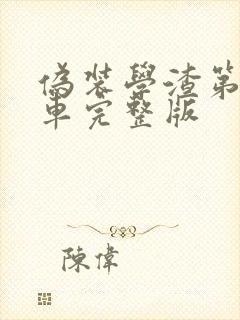 偽裝學渣第
車完整版
陳偉